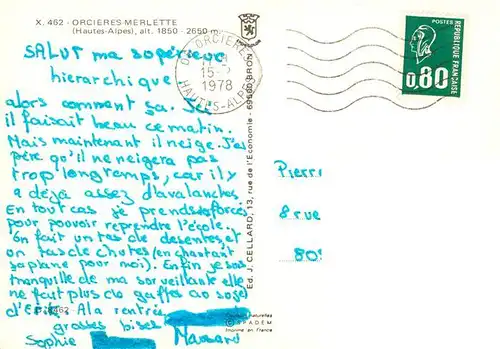 X. 462 - ORCIERES-MERLETTE
(Hautes-Alpes), alt. 1850 - 2650 m
SALUT ma supérieure
hierarchique
alors comment sa. Ici
il faisait beau ce matin.
Mais maintenant il neige. J'es
père qu'il ne neigera pas
trop longtemps, car il y
a déjà assez d'avalanches.
En tout cas je prends forces
pour pouvoir reprendre l'école.
On fait un tas de desentes, et
un tas de chutes (en chantant
sa plane pour moi). Enfin je suis
tranquille de ma sorveillante elle
ne fait plus de gaffes au sujet
d'E A la rentrée
grosses bises
Sophie
X. 462
Ed. J. CELLARD, 13, rue de l'Economie - 69500 BRON
Couleurs naturelles
SPADEM
Imprimé en France
ORCIERES
15-
1978
HAUTES-ALPES
POSTES
0,80
REPUBLIQUE FRANÇAISE
Pierri
8 rue
80